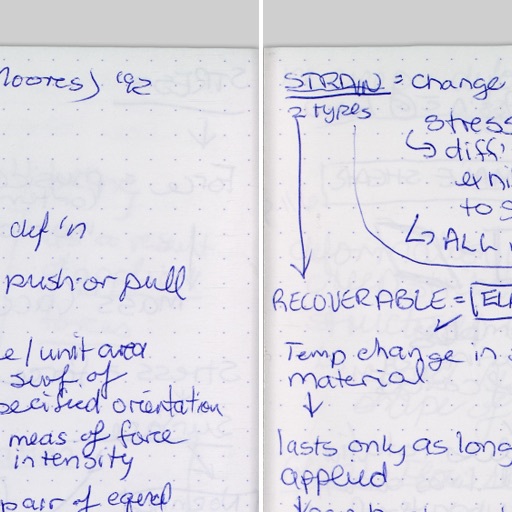 Moores) '92
def'n
push or pull
e / unit area
surf. of
pecified orientation
meas of force
intensity
pair of equal
STRAIN = change
2 types
stress
↳ diff'
exhi
to s
↳ ALL
RECOVERABLE = EL
Temp change in
material
↓
lasts only as long
applied